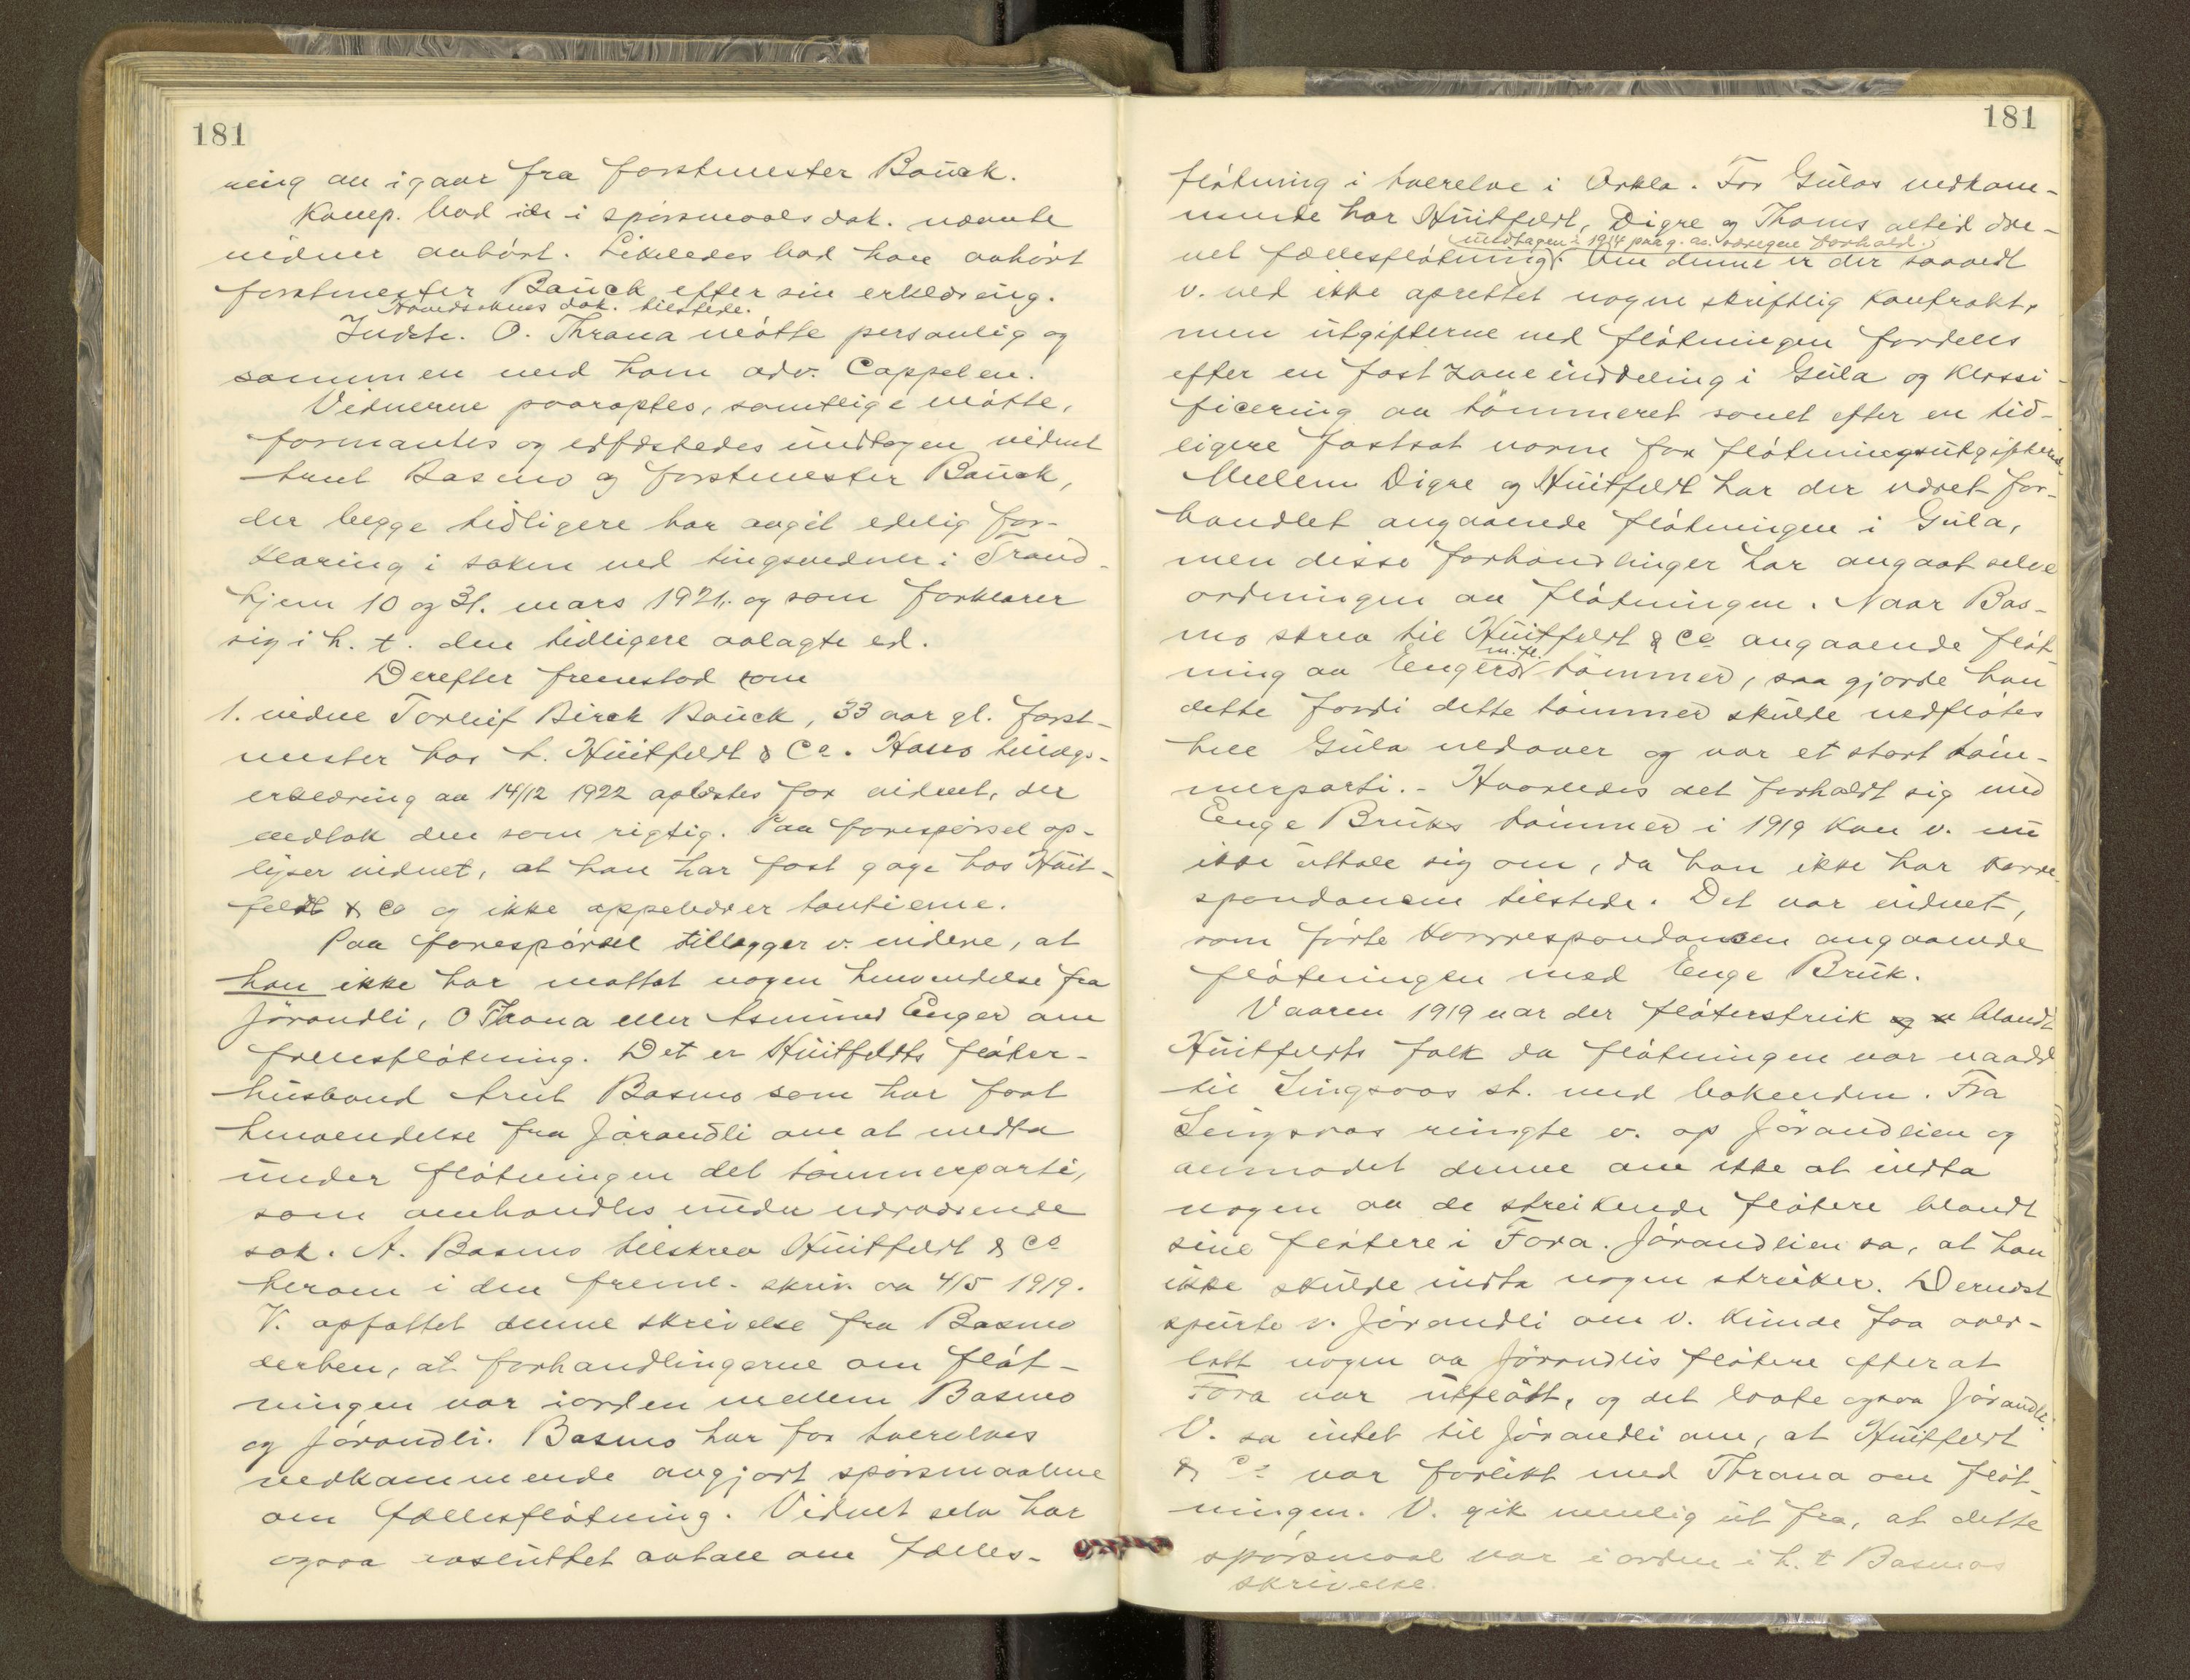 181
ning av igaar fra forstmester Bauck.
Komp. bad de i spørsmaalsdok. nævnte
vidner avhørt. Likeledes bad han avhørt
forstmester Bauck efter sin erklæring.
Hovedsakens dok. tilstede.
Indst. O. Thrana møtte personlig og
sammen med ham adv. Cappelen.
Vidnerne paaroptes, samtlige møtte,
formantes og edfæstedes undtagen vidnet
Arnt Basmo og forstmester Bauck,
der begge tidligere har avgit edelig for-
klaring i saken ved tingsvidner i Trond-
hjem 10 og 31. mars 1921, og som forklarer
sig i h. t. den tidligere avlagte ed.
Derefter fremstod som
1. vidne Torleif Birch Bauck, 33 aar gl. forst-
mester hos H. Huitfeldt & Co. Hans tillægs-
erklæring av 14/12 1922 oplæstes for vidnet, der
vedtok den som rigtig. Paa forespørsel op-
lyser vidnet, at han har fast gage hos Huit-
feldt & Co og ikke oppebærer tantieme.
Paa forespørsel tillægger v. videre, at
han ikke har mottat nogen henvendelse fra
Jørandli, O Thrana eller Asmund Enger om
fremfløtning. Det er Huitfeldts fløter-
husbond Arnt Basmo som har faat
henvendelse fra Jørandli om at medta
under fløtningen det tømmerparti,
som omhandles under nærværende
sak. A. Basmo tilskrev Huitfeldt & Co
herom i den freml. skriv. av 4/5 1919.
V. opfattet denne skrivelse fra Basmo
derhen, at forhandlingerne om fløt-
ningen var iorden mellem Basmo
og Jørandli. Basmo har for tverelves
vedkommende avgjort spørsmaalene
om fællesfløtning. Vidnet selv har
ogsaa avsluttet avtale om fælles-
181
fløtning i tverelve i Orkla. For Gulas vedkom-
mende har Huitfeldt, Digre og Thams altid dre-
undtagen i 1914 paa g. av særegne forhold.
vet fællesfløtning. Om denne er der saavidt
v. ved ikke oprettet nogen skriftlig kontrakt,
men utgifterne ved fløtningen fordeles
efter en fast zoneinddeling i Gula og klassi-
ficering av tømmeret samt efter en tid-
ligere fastsat norm for fløtningsutgifterne.
Mellem Digre og Huitfeldt har der været for-
handlet angaaende fløtningen i Gula,
men disse forhandlinger har angaat selve
ordningen av fløtningen. Naar Bas-
mo skrev til Huitfeldt & Co angaaende fløt-
m. fl.
ning av Engers tømmer, saa gjorde han
dette fordi dette tømmer skulde nedfløtes
hele Gula nedover og var et stort tøm-
merparti. - Hvorledes det forholdt sig med
Enge Bruks tømmer i 1919 kan v. nu
ikke uttale sig om, da han ikke har korre-
spondancen tilstede. Det var vidnet,
som førte korrespondansen angaaende
fløtningen med Enge Bruk.
Vaaren 1919 var der fløterstreik blandt
Huitfeldts folk da fløtningen var naadd
til Singsaas st. med bakenden. Fra
Singsaas ringte v. op Jørandlien og
anmodet denne om ikke at indta
nogen av de streikende fløtere blandt
sine fløtere i Fora. Jørandlien sa, at han
ikke skulde indta nogen streiker. Dernæst
spurte v. Jørandli om v. kunde faa over-
latt nogen av Jørandlis fløtere efter at
Fora var utfløtt, og det lovte ogsaa Jørandli.
V. sa intet til Jørandli om, at Huitfeldt
& Co var forlikt med Thrana om fløt-
ningen. V. gik nemlig ut fra, at dette
spørsmaal var i orden i h. t Basmos
skrivelse.